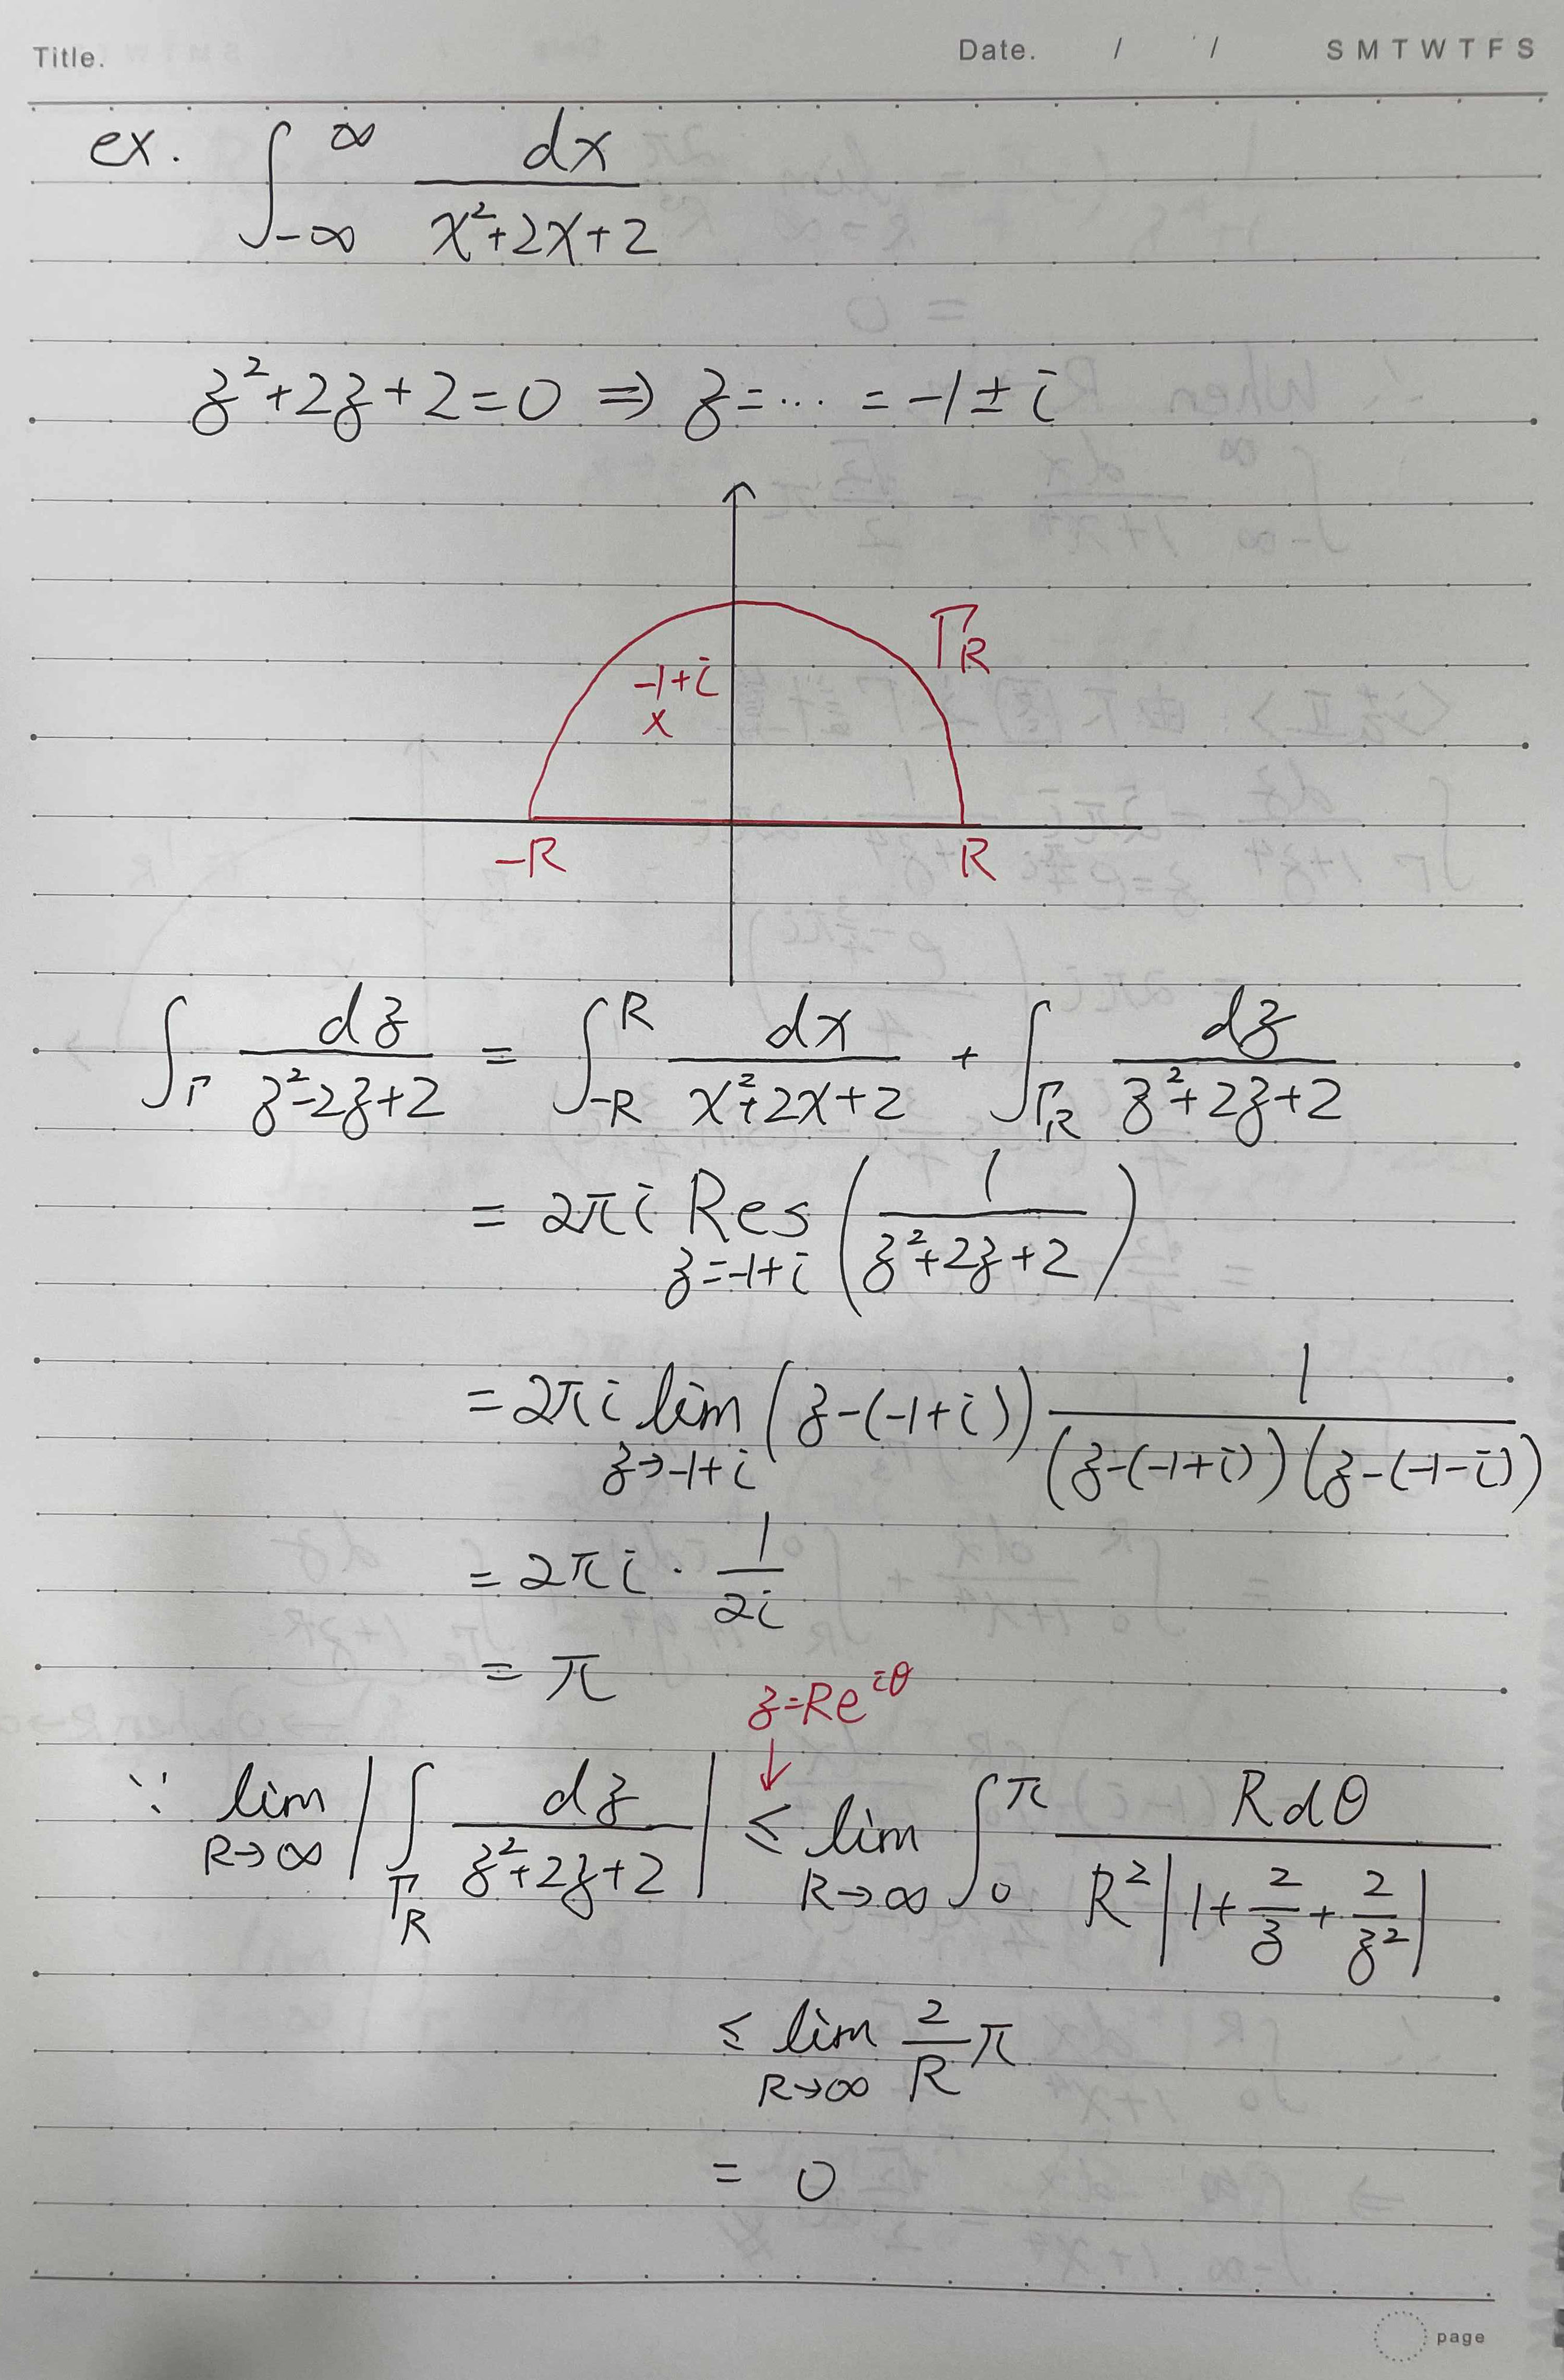 Title. Date. / / S M T W T F S
ex. ∫_{-∞}^{∞} dx/(x²+2x+2)
z²+2z+2=0 ⇒ z=⋯ = -1±i
Γ_R
-1+i
x
-R R
∫_Γ dz/(z²-2z+2) = ∫_{-R}^{R} dx/(x²+2x+2) + ∫_{Γ_R} dz/(z²+2z+2)
= 2πi Res_{z=-1+i} (1/(z²+2z+2))
= 2πi lim_{z→-1+i} (z-(-1+i)) 1/((z-(-1+i))(z-(-1-i)))
= 2πi · 1/(2i)
= π
z=Re^{iθ}
↓
∵ lim_{R→∞} |∫_{Γ_R} dz/(z²+2z+2)| ≤ lim_{R→∞} ∫_0^π Rdθ/(R²|1+2/z+2/z²|)
≤ lim_{R→∞} (2/R)π
= 0
page